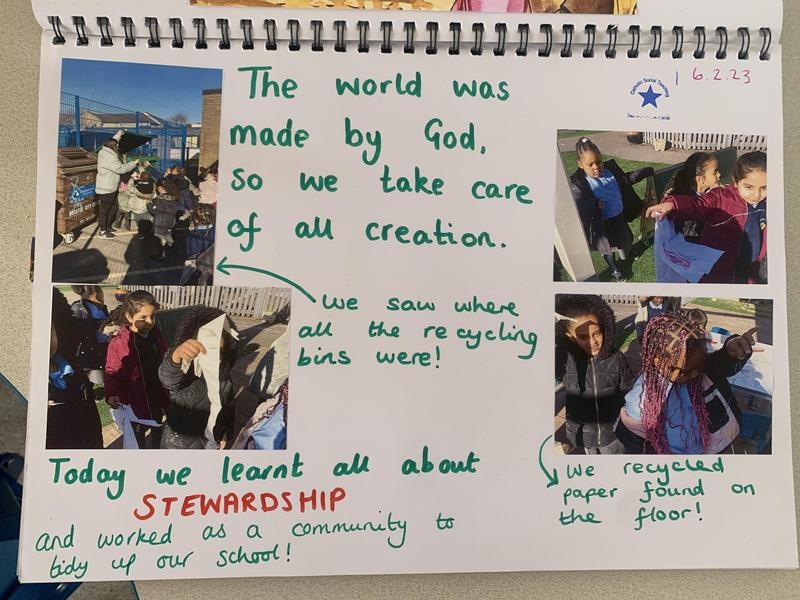 The world was
made by God,
so we take care
of all creation.
6.2.23
Catholic Social Teaching
we saw where
all the recycling
bins were!
Today we learnt all about
STEWARDSHIP
and worked as a community to
tidy up our school!
We recycled
paper found on
the floor!